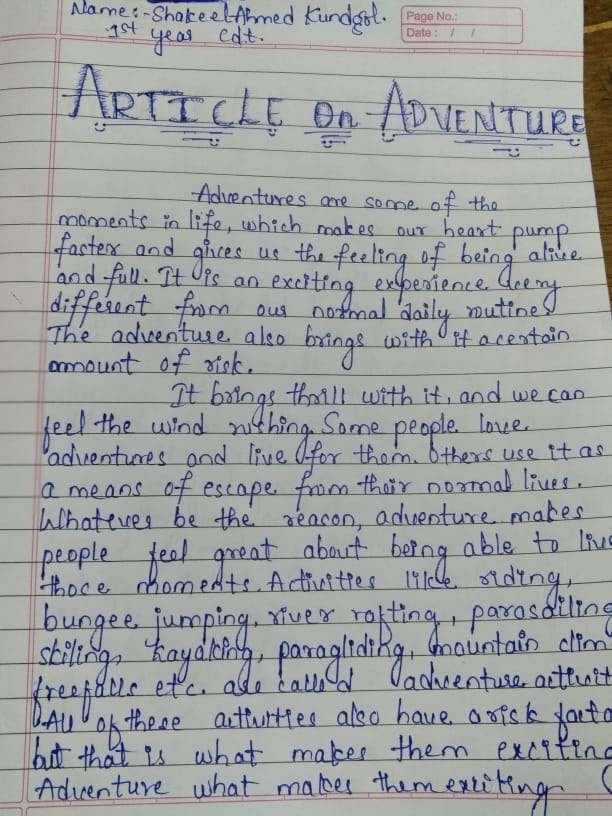 Name:- Shakeel Ahmed Kundgol.
1st year cdt.
Page No.:
Date: / /
ARTICLE On ADVENTURE
Adventures are some of the
moments in life, which makes our heart pump
faster and gives us the feeling of being alive
and full. It is an exciting experience very
different from our normal daily routines
The adventure also brings with it acertain
ammount of risk.
It brings thrill with it, and we can
feel the wind rushing. Some people love
adventures and live for them. Others use it as
a means of escape from their normal lives.
Whatever be the reason, adventure makes
people feel great about being able to live
those moments. Activities like riding,
bungee jumping, river rafting, parasailing
skiling, kayaking, paragliding, mountain clim
freefalls etc. are called adventure activit
All of these activities also have a risk facto
but that is what makes them exciting
Adventure what makes them exciting